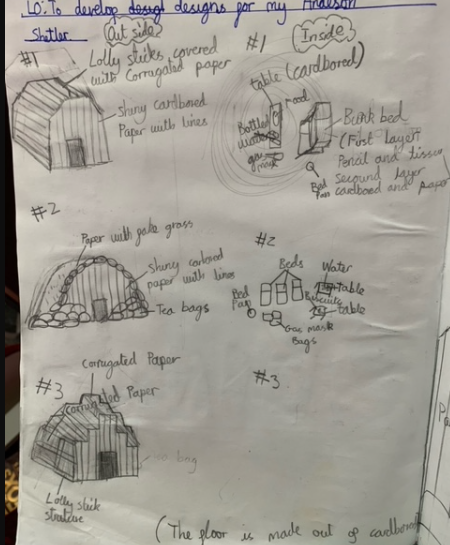 LO: To develop design designs for my Anderson
Shetler
Out side
Inside
#1
Lolly sticks covered
with corrugated paper
Shiny cardbored
Paper with lines
#1
table (cardbored)
food
Bottled
water
gas
mask
Bunk bed
(First layer
Pencil and tissue
second layer
cardboard and paper
Bed
Pan
#2
Paper with fake grass
Shiny carbored
paper with lines
Tea bags
#2
Beds
Water
table
Bed
Pan
Biscuits
table
Gas mask
Bags
#3
Corrugated Paper
Corrugated Paper
bag
Lolly stick
#3
(The floor is made out of cardbored